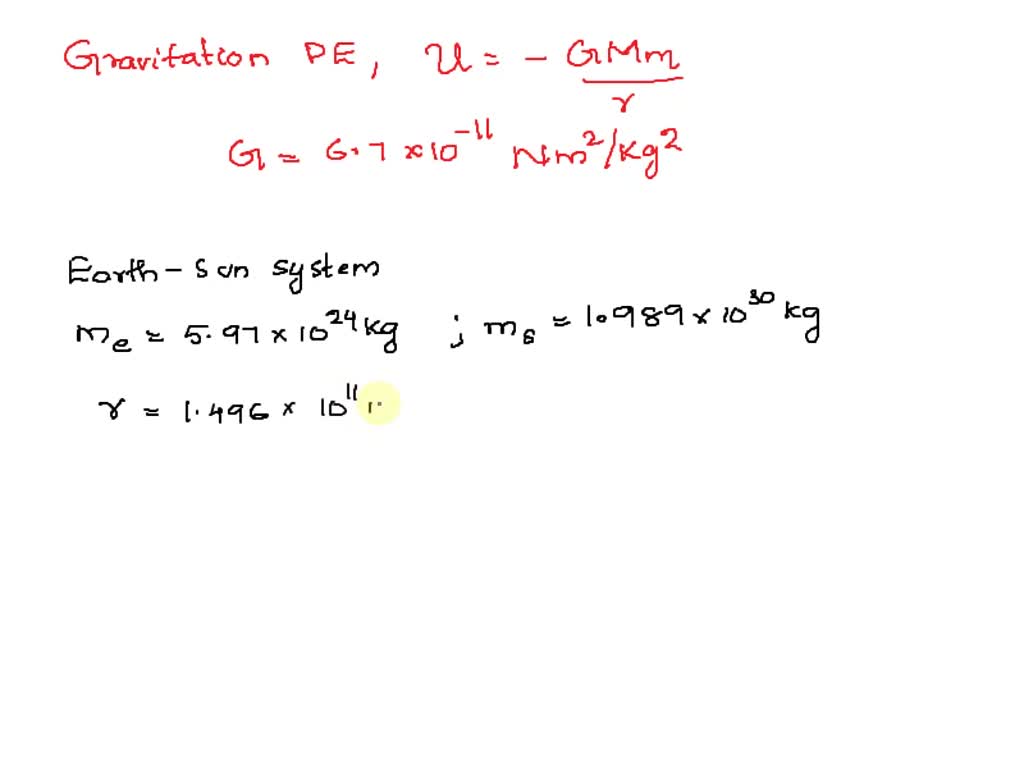 Gravitation PE, U = - GMm/r
G = 6.7 × 10^-11 Nm^2/kg^2
Earth - Sun system
me = 5.97 × 10^24 kg ; ms = 1.989 × 10^30 kg
r = 1.496 × 10^11